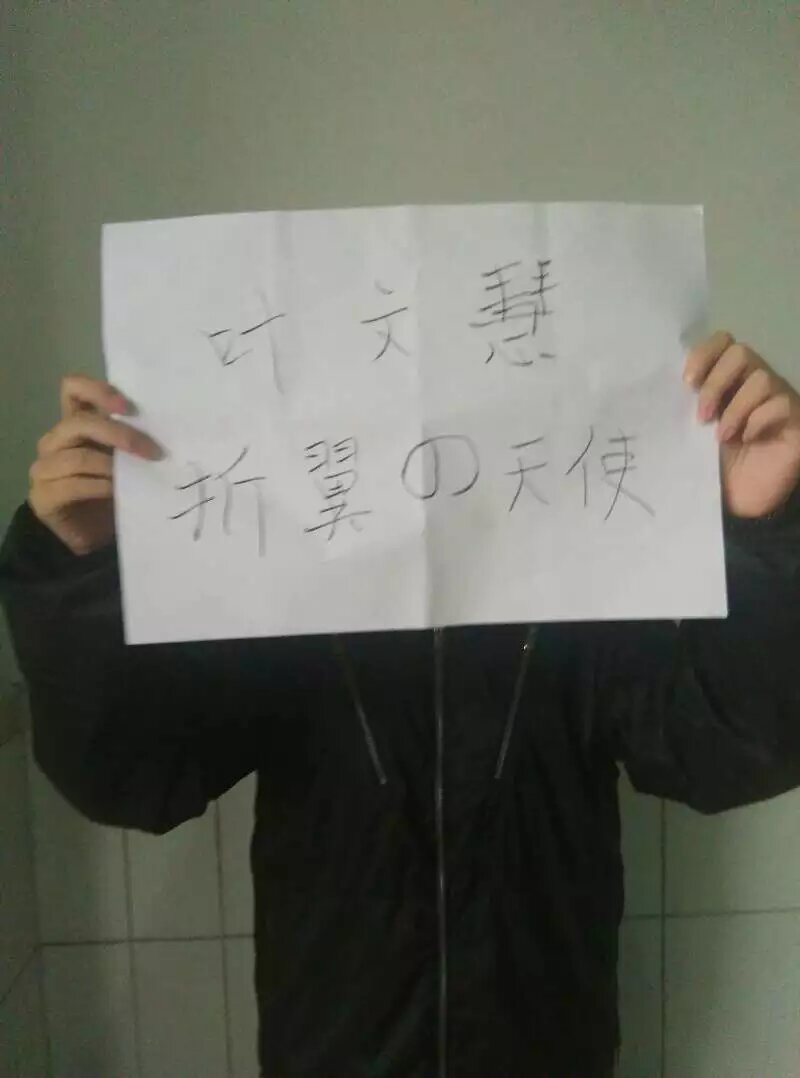 叶文慧
折翼の天使